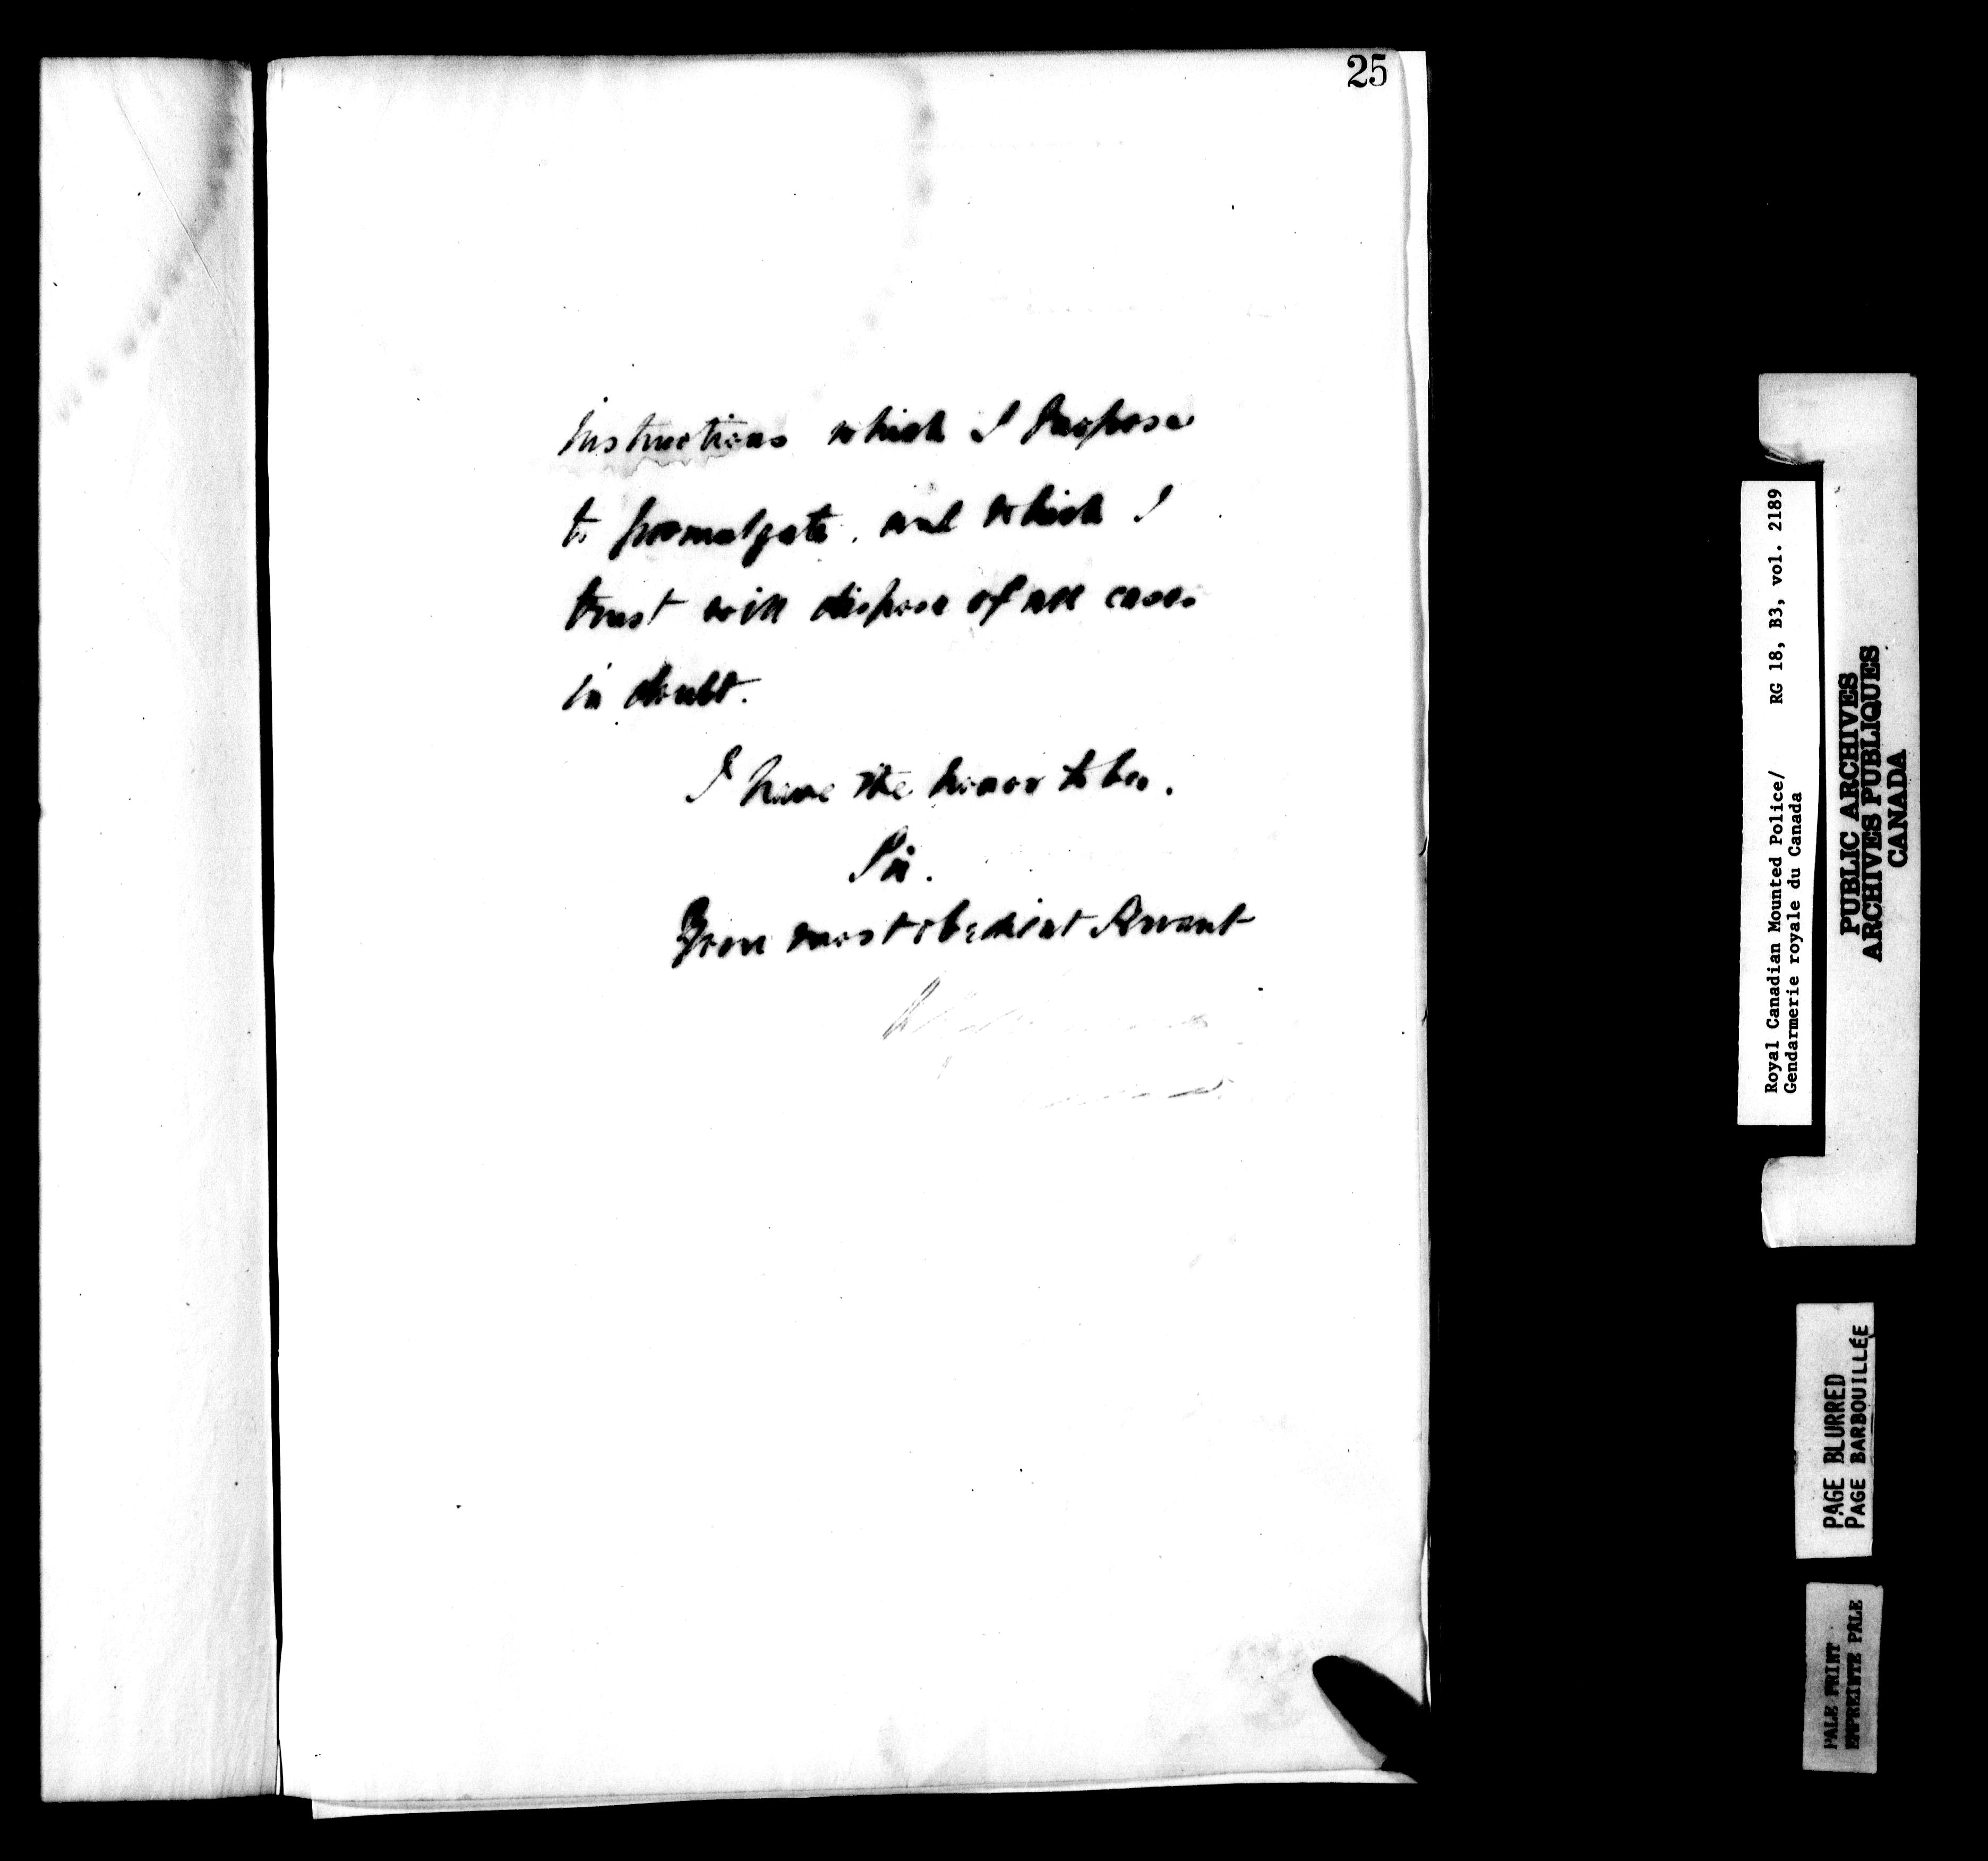 25
instructions which I propose
to promulgate, and which I
trust will dispose of all cases
in doubt.
I have the honor to be.
Sir.
Your most obedient Servant
Royal Canadian Mounted Police/ RG 18, B3, vol. 2189
Gendarmerie royale du Canada
PUBLIC ARCHIVES
ARCHIVES PUBLIQUES
CANADA
PAGE BLURRED
PAGE BARBOUILLÉE
PALE PRINT
EMPREINTE PALE